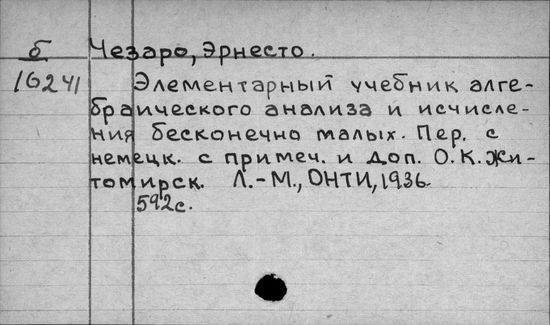 б Чезаро, Эрнесто.
16241 Элементарный учебник алге-
браического анализа и исчисле-
ния бесконечно малых. Пер. с
немецк. с примеч. и доп. О.К. Жи-
томирск. Л.-М., ОНТИ, 1936.
592с.